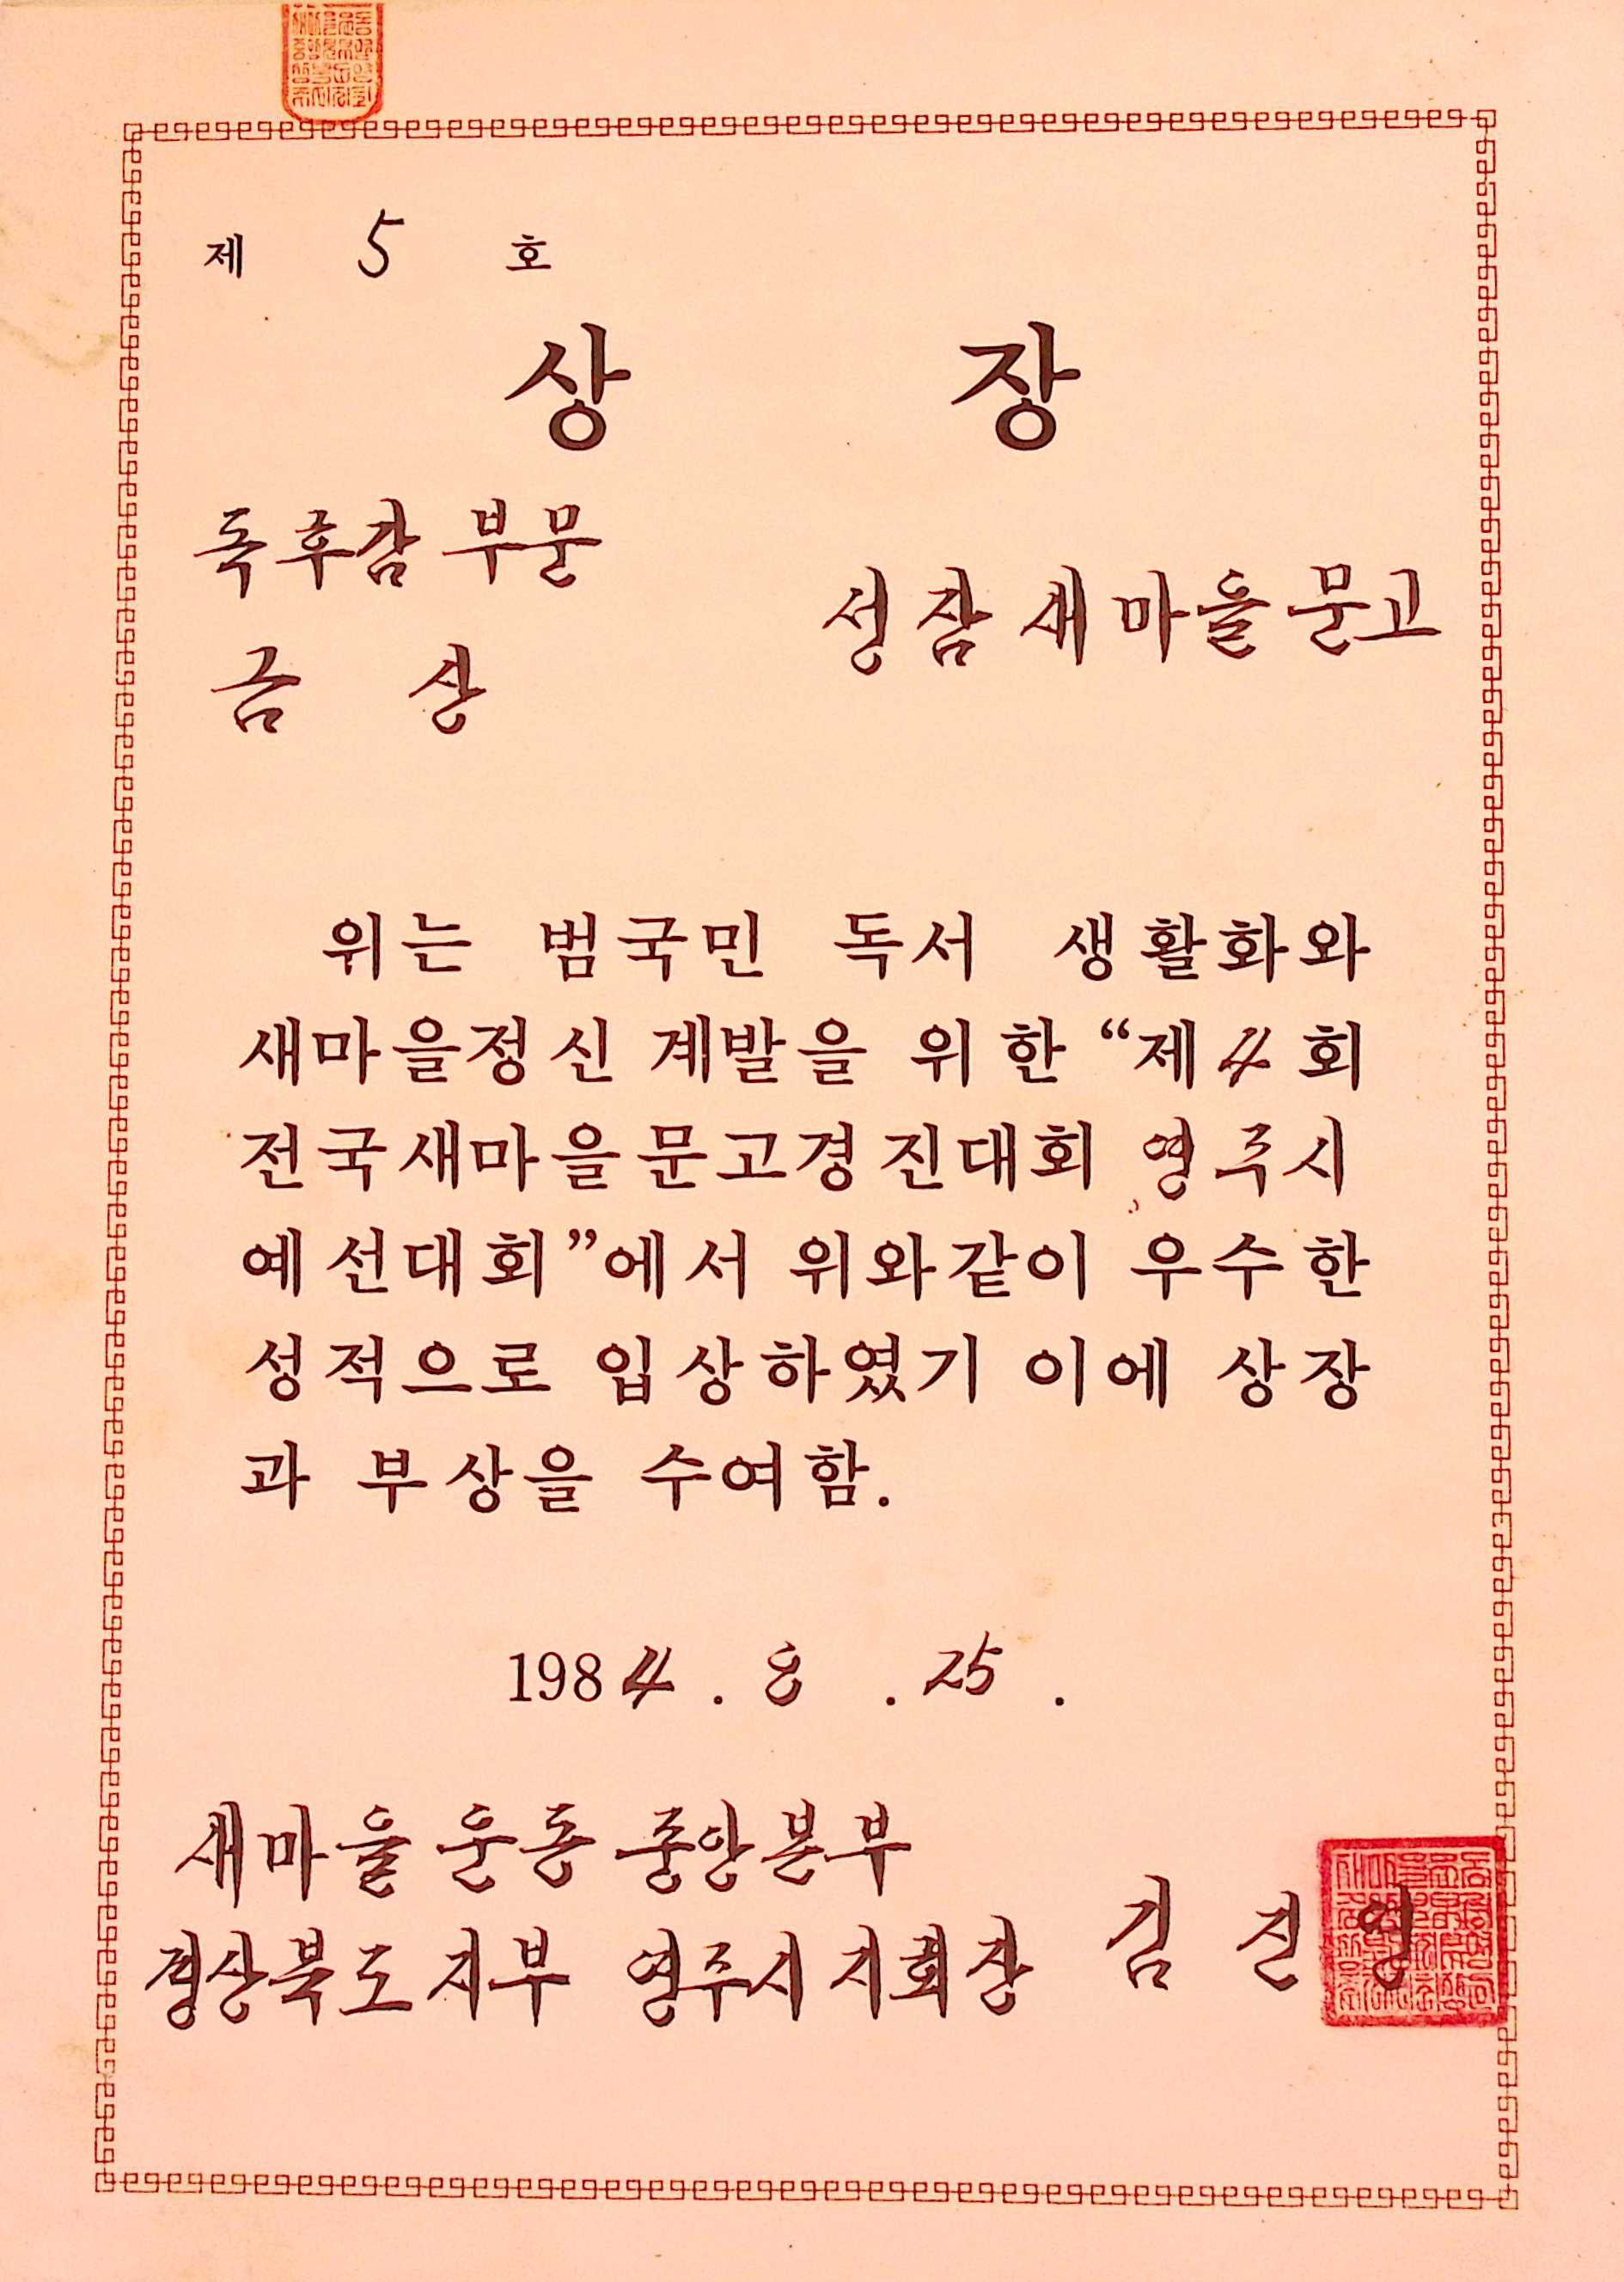 제 5 호
상 장
독후감 부문
성잠새마을문고
금 상
위는 범국민 독서 생활화와
새마을정신 계발을 위한 “제4회
전국새마을문고경진대회 영주시
예선대회”에서 위와같이 우수한
성적으로 입상하였기 이에 상장
과 부상을 수여함.
1984 . 8 . 25 .
새마을운동중앙본부
경상북도지부 영주시지회장 김진영